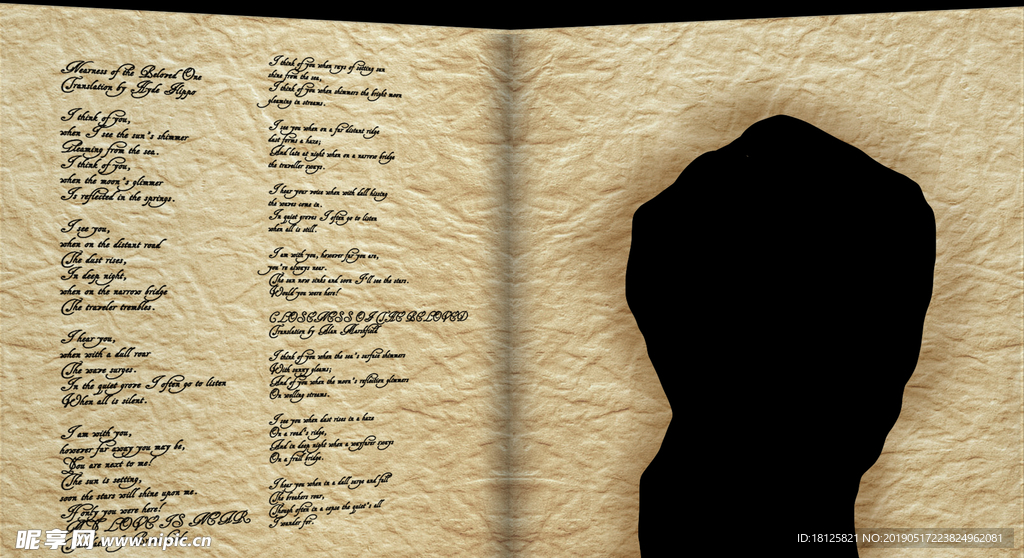 Nearness of the Beloved One
Translation by Hyde Flippo
I think of you,
when I see the sun's shimmer
Gleaming from the sea.
I think of you,
when the moon's glimmer
Is reflected in the springs.
I see you,
when on the distant road
The dust rises,
In deep night,
when on the narrow bridge
The traveler trembles.
I hear you,
when with a dull roar
The wave surges.
In the quiet grove I often go to listen
When all is silent.
I am with you,
however far away you may be,
You are next to me!
The sun is setting,
soon the stars will shine upon me.
If only you were here!
LOVE IS NEAR
I think of you when rays of setting sun
shine from the sea,
I think of you when shimmers the bright moon
gleaming in streams.
I see you when on a far distant ridge
dust forms a haze;
And late at night when on a narrow bridge
the traveller sways.
I hear your voice when with dull hissing
the waves come in.
In quiet groves I often go to listen
when all is still.
I am with you, however far you are,
you're always near.
The sun now sinks and soon I'll see the stars.
Would you were here!
CLOSENESS OF THE BELOVED
Translation by Alan Marshfield
I think of you when the sea's surface shimmers
With sunny gleams;
And of you when the moon's reflection glimmers
On welling streams.
I see you when dust rises in a haze
On a road's ridge,
And in deep night when a wayfarer sways
On a frail bridge.
I hear you when in a dull surge and fall
The breakers roar,
Though often in a copse the quiet's all
I wander for.
昵享网 www.nipic.cn
ID:18125821 NO:20190517223824962081